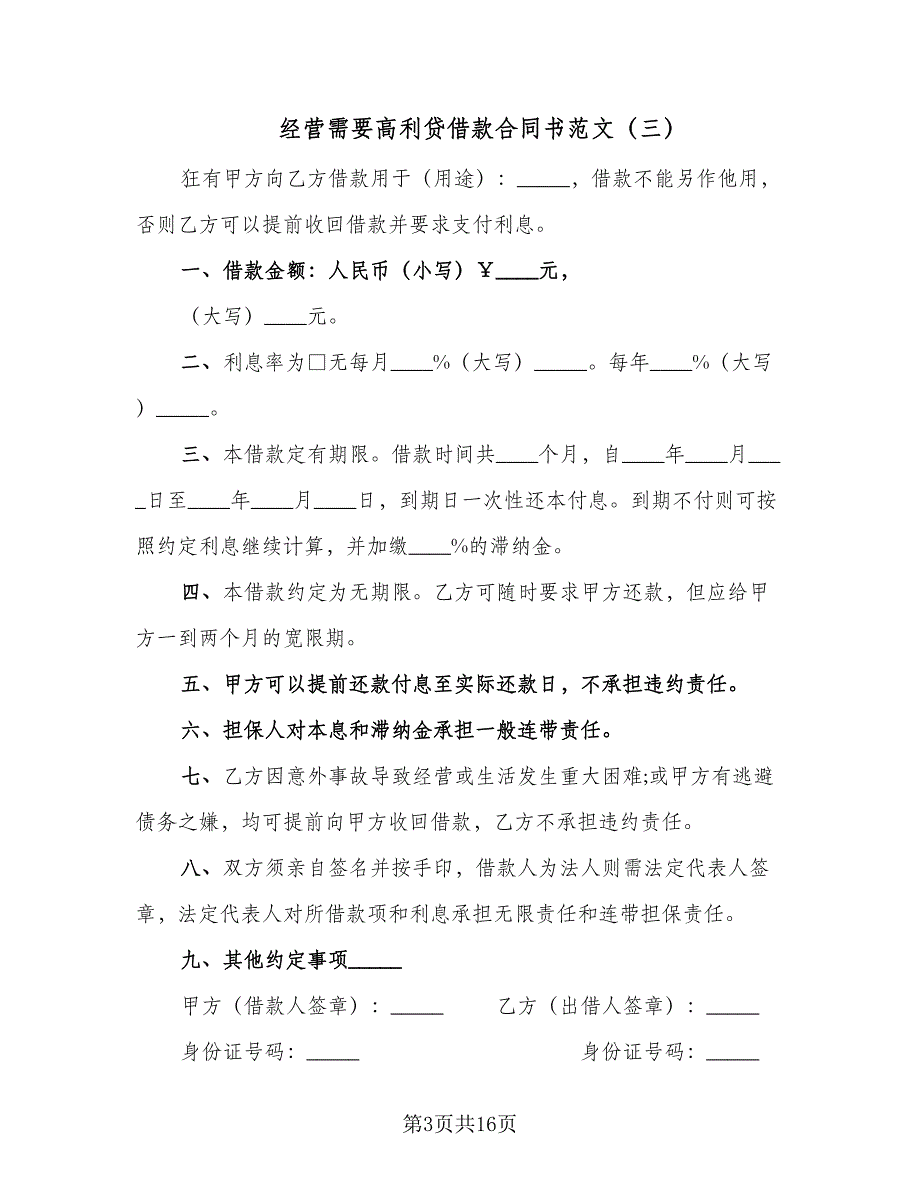 经营需要高利贷借款合同书范文（三）
狂有甲方向乙方借款用于（用途）：_____，借款不能另作他用，
否则乙方可以提前收回借款并要求支付利息。
一、借款金额：人民币（小写）￥____元，
（大写）____元。
二、利息率为□无每月____%（大写）_____。每年____%（大写
）_____。
三、本借款定有期限。借款时间共____个月，自____年____月___
_日至____年____月____日，到期日一次性还本付息。到期不付则可按
照约定利息继续计算，并加缴____%的滞纳金。
四、本借款约定为无期限。乙方可随时要求甲方还款，但应给甲
方一到两个月的宽限期。
五、甲方可以提前还款付息至实际还款日，不承担违约责任。
六、担保人对本息和滞纳金承担一般连带责任。
七、乙方因意外事故导致经营或生活发生重大困难;或甲方有逃避
债务之嫌，均可提前向甲方收回借款，乙方不承担违约责任。
八、双方须亲自签名并按手印，借款人为法人则需法定代表人签
章，法定代表人对所借款项和利息承担无限责任和连带担保责任。
九、其他约定事项_____
甲方（借款人签章）：_____ 乙方（出借人签章）：_____
身份证号码：_____ 身份证号码：_____
第3页共16页